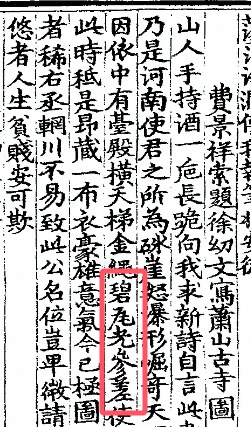 費景祥索題徐幼文寫蕭山古寺圖
山人手持酒一巵長跪向我求新詩自言此
乃是河南使君之所為砯崖怒瀑形崛奇天
因依中有臺殿橫天梯金繩碧瓦光參差使
此時秪是昂藏一布衣豪雄意氣今已極圖
者稀右丞輞川不易致此公名位豈卑微請
悠者人生貧賤安可欺